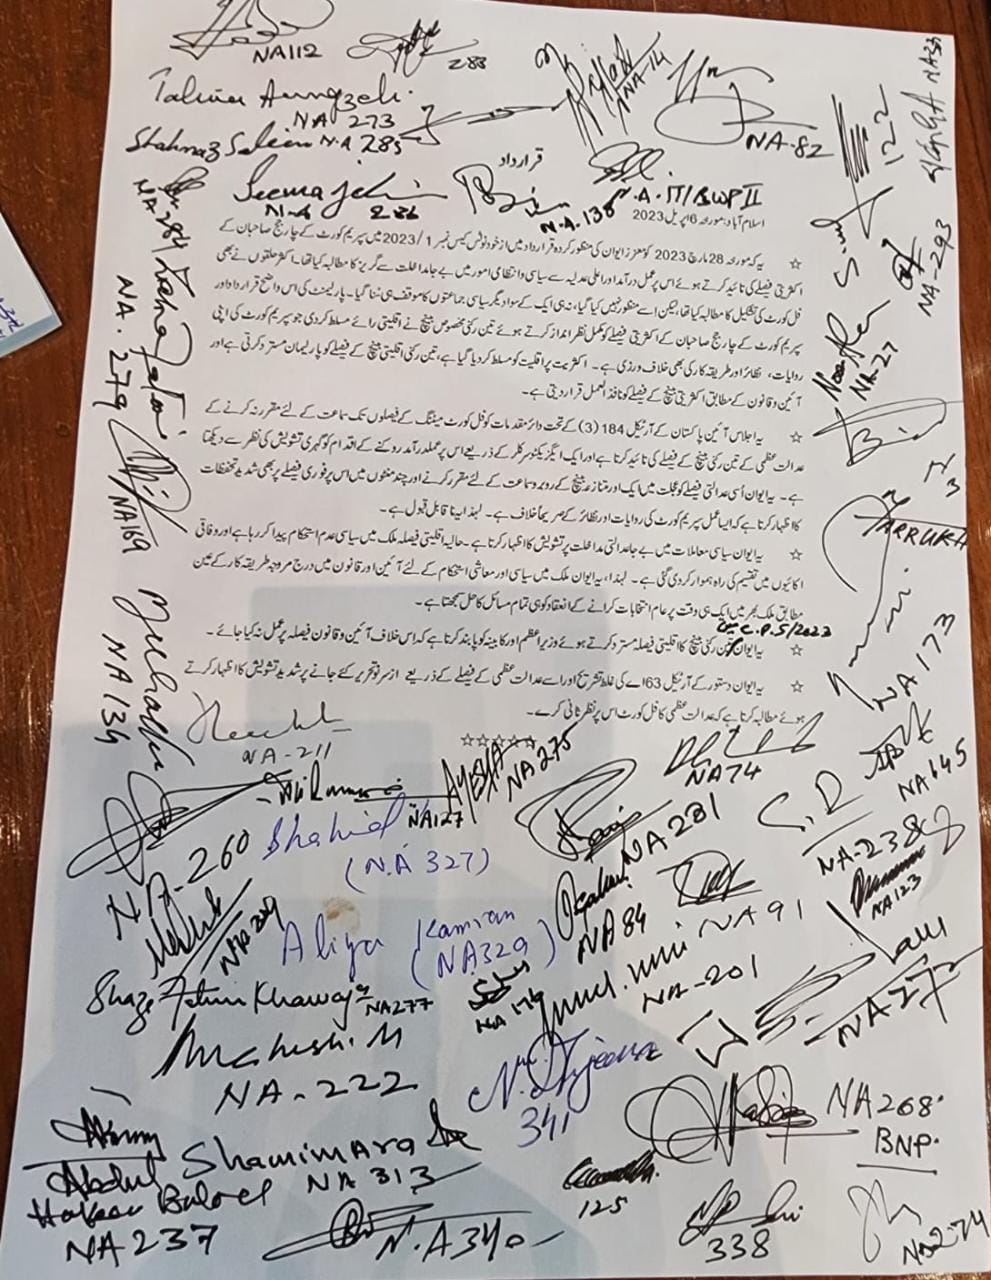 NA112
288
Tahira Aurngzeb.
NA 273
Shahnaz Saleem N.A 285
NA-14
NA-82
122
قرارداد
Seema
N-A 286
N.A. 138
N.A. IT/BWP II
NA-293
NA 284
NA. 279
NA-27
NA169
NA134
FARRUKH
NA 173
اسلام آباد: مورخہ 6 اپریل 2023
☆ یہ کہ مورخہ 28 مارچ 2023 کو معزز ایوان کی منظور کردہ قرارداد میں از خود نوٹس کیس نمبر 1/2023 میں سپریم کورٹ کے چار جج صاحبان کے
اکثریتی فیصلے کی تائید کرتے ہوئے اس پر عمل درآمد اور اعلیٰ عدلیہ سے سیاسی و انتظامی امور میں بے جا مداخلت سے گریز کا مطالبہ کیا تھا۔ اکثر حلقوں نے بھی
فل کورٹ کی تشکیل کا مطالبہ کیا تھا، لیکن اسے منظور نہیں کیا گیا، نہ ہی ایک کے سوا دیگر سیاسی جماعتوں کا موقف ہی سنا گیا۔ پارلیمنٹ کی اس واضح قرارداد اور
سپریم کورٹ کے چار جج صاحبان کے اکثریتی فیصلے کو مکمل نظر انداز کرتے ہوئے تین رکنی مخصوص بینچ نے اقلیتی رائے مسلط کر دی جو سپریم کورٹ کی اپنی
روایات، نظائر اور طریقہ کار کی بھی خلاف ورزی ہے۔ اکثریت پر اقلیت کو مسلط کر دیا گیا ہے، تین رکنی اقلیتی بینچ کے فیصلے کو پارلیمان مسترد کرتی ہے اور
آئین و قانون کے مطابق اکثریتی بینچ کے فیصلے کو نافذ العمل قرار دیتی ہے۔
☆ یہ اجلاس آئین پاکستان کے آرٹیکل 184 (3) کے تحت دائر مقدمات کو فل کورٹ میٹنگ کے فیصلوں تک سماعت کے لئے مقرر نہ کرنے کے
عدالت عظمیٰ کے تین رکنی بینچ کے فیصلے کی تائید کرتا ہے اور ایک ایگزیکٹو سرکلر کے ذریعے اس پر عملدرآمد روکنے کے اقدام کو گہری تشویش کی نظر سے دیکھتا
ہے۔ یہ ایوان اُسی عدالتی فیصلے کو عجلت میں ایک اور متنازعہ بینچ کے روبرو سماعت کے لئے مقرر کرنے اور چند منٹوں میں اس پر فوری فیصلے پر بھی شدید تحفظات
کا اظہار کرتا ہے کہ ایسا عمل سپریم کورٹ کی روایات اور نظائر کے صریحاً خلاف ہے۔ لہذا یہ ناقابل قبول ہے۔
☆ یہ ایوان سیاسی معاملات میں بے جا عدالتی مداخلت پر تشویش کا اظہار کرتا ہے۔ حالیہ اقلیتی فیصلہ ملک میں سیاسی عدم استحکام پیدا کر رہا ہے اور وفاقی
اکائیوں میں تقسیم کی راہ ہموار کر دی گئی ہے۔ لہذا، یہ ایوان ملک میں سیاسی اور معاشی استحکام کے لئے آئین اور قانون میں درج مروجہ طریقہ کار کے عین
مطابق ملک بھر میں ایک ہی وقت پر عام انتخابات کرانے کے انعقاد کو ہی تمام مسائل کا حل سمجھتا ہے۔
میں C.P. 5/2023
☆ یہ ایوان تین رکنی بینچ کا اقلیتی فیصلہ مسترد کرتے ہوئے وزیراعظم اور کابینہ کو پابند کرتا ہے کہ اس خلاف آئین و قانون فیصلہ پر عمل نہ کیا جائے۔
☆ یہ ایوان دستور کے آرٹیکل 63اے کی غلط تشریح اور اسے عدالت عظمیٰ کے فیصلے کے ذریعے ازسرنو تحریر کئے جانے پر شدید تشویش کا اظہار کرتے
ہوئے مطالبہ کرتا ہے کہ عدالت عظمیٰ کا فل کورٹ اس پر نظر ثانی کرے۔
☆☆☆☆☆
NA-211
NA127
AYESHA
NA275
NA74
NA145
NA-260
Shahid
(N.A 327)
NA281
NA-238
NA123
Aliya Kamran
(NA329)
NA84
NA91
NA-201
Shaza Fatima Khawaja
NA277
NA 174
NA-27
Mahesh. M
NA-222
341
NA268.
BNP.
Abdul
Hakeem Baloch
NA237
Shamim Ara
NA 313
N.A340
125
338
NA274